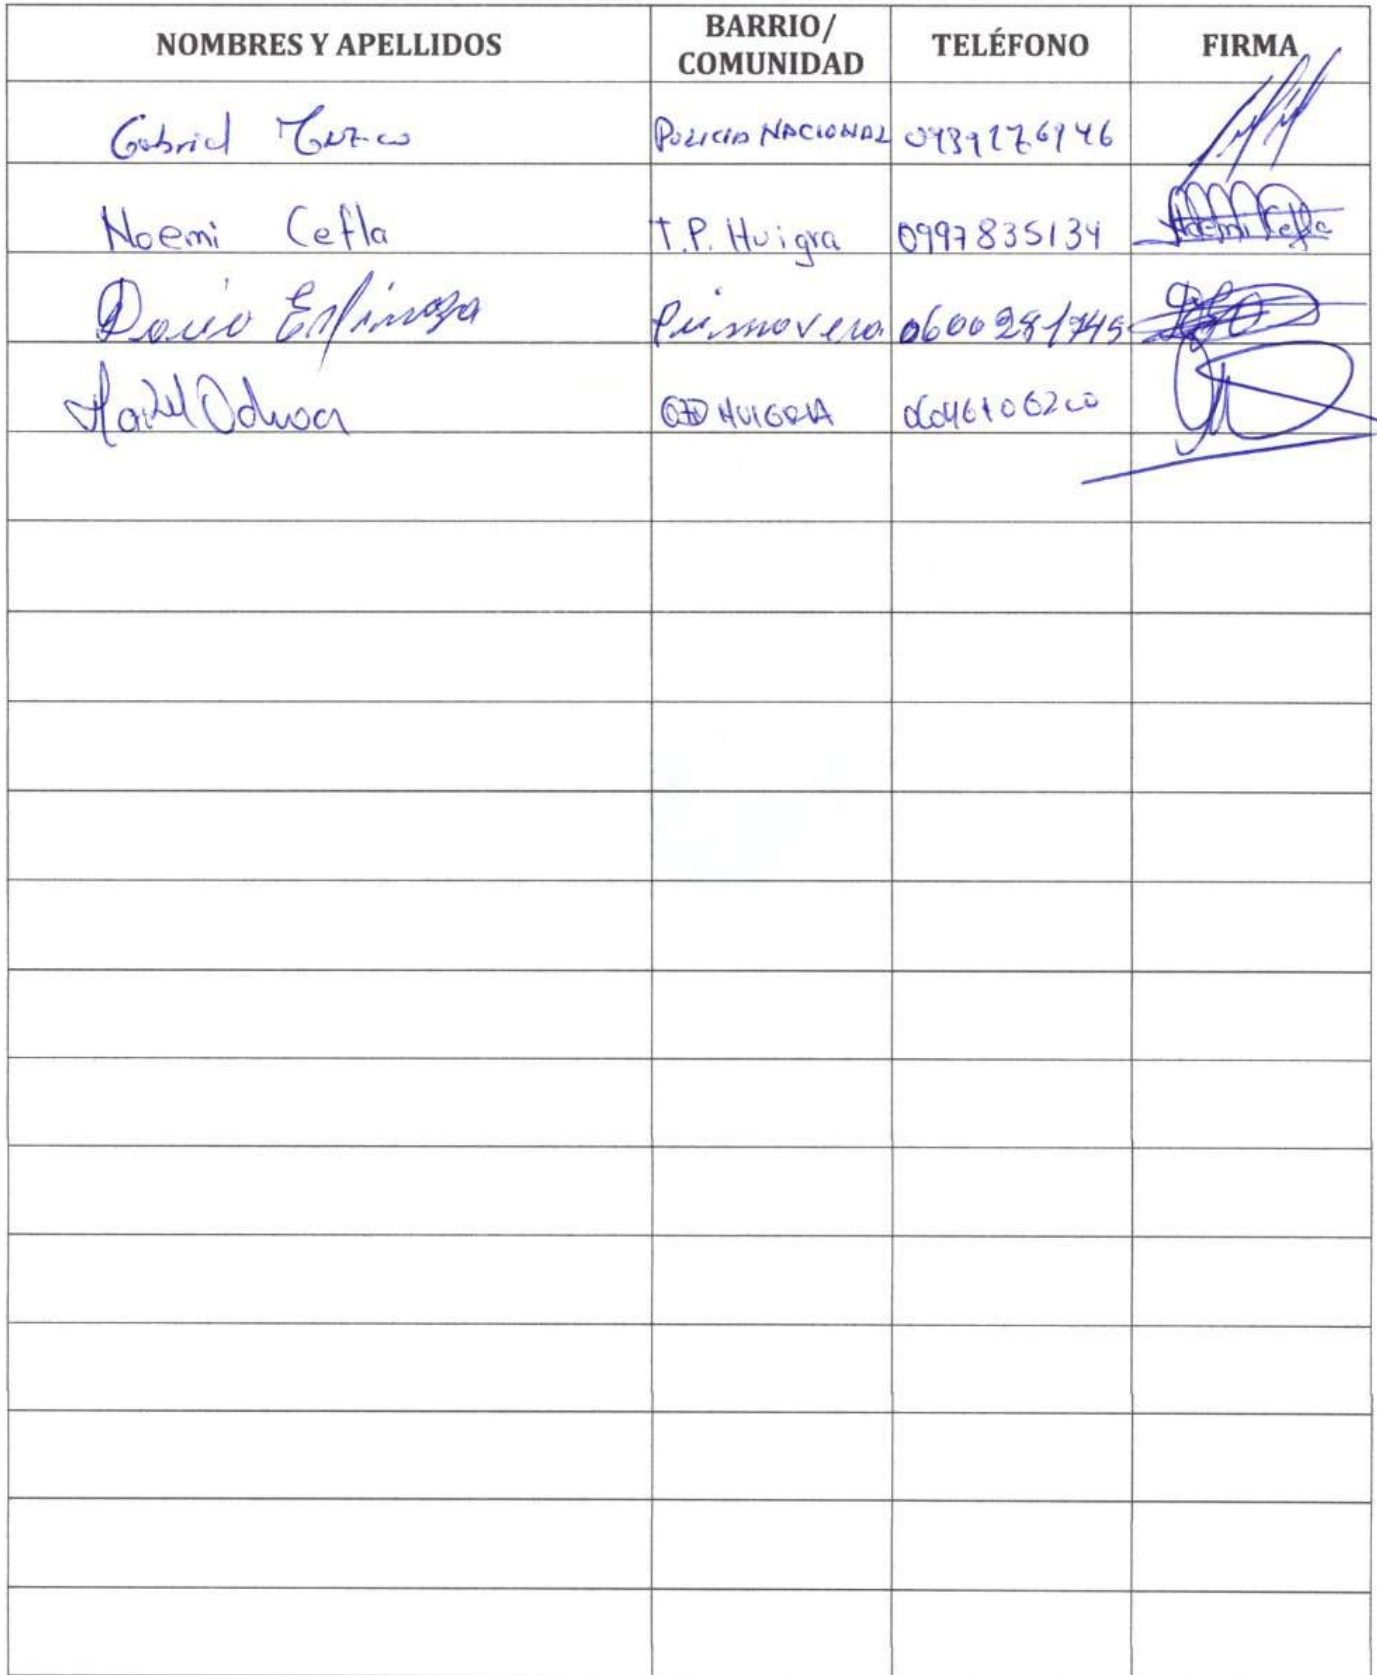 NOMBRES Y APELLIDOS BARRIO/ COMUNIDAD TELÉFONO FIRMA
Gabriel POLICIA NACIONAL
Noemi Cefla T.P. Huigra 0997835134 Noemi Cefla
Dario Espinoza Primavera 0600281745
Ochoa HUIGRA